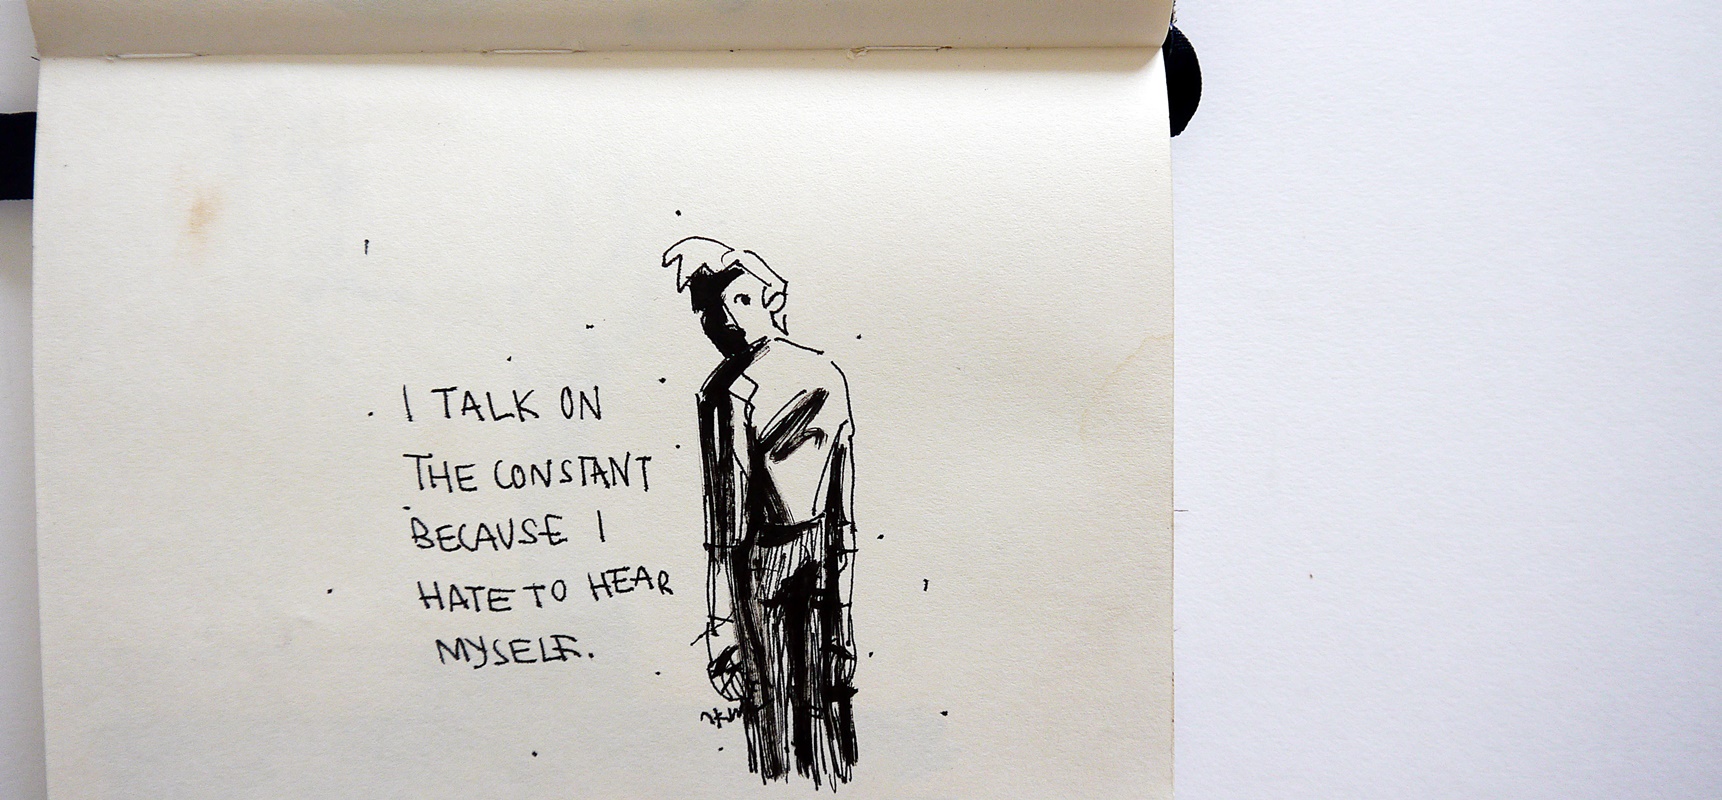 I TALK ON
THE CONSTANT
BECAUSE I
HATE TO HEAR
MYSELF.